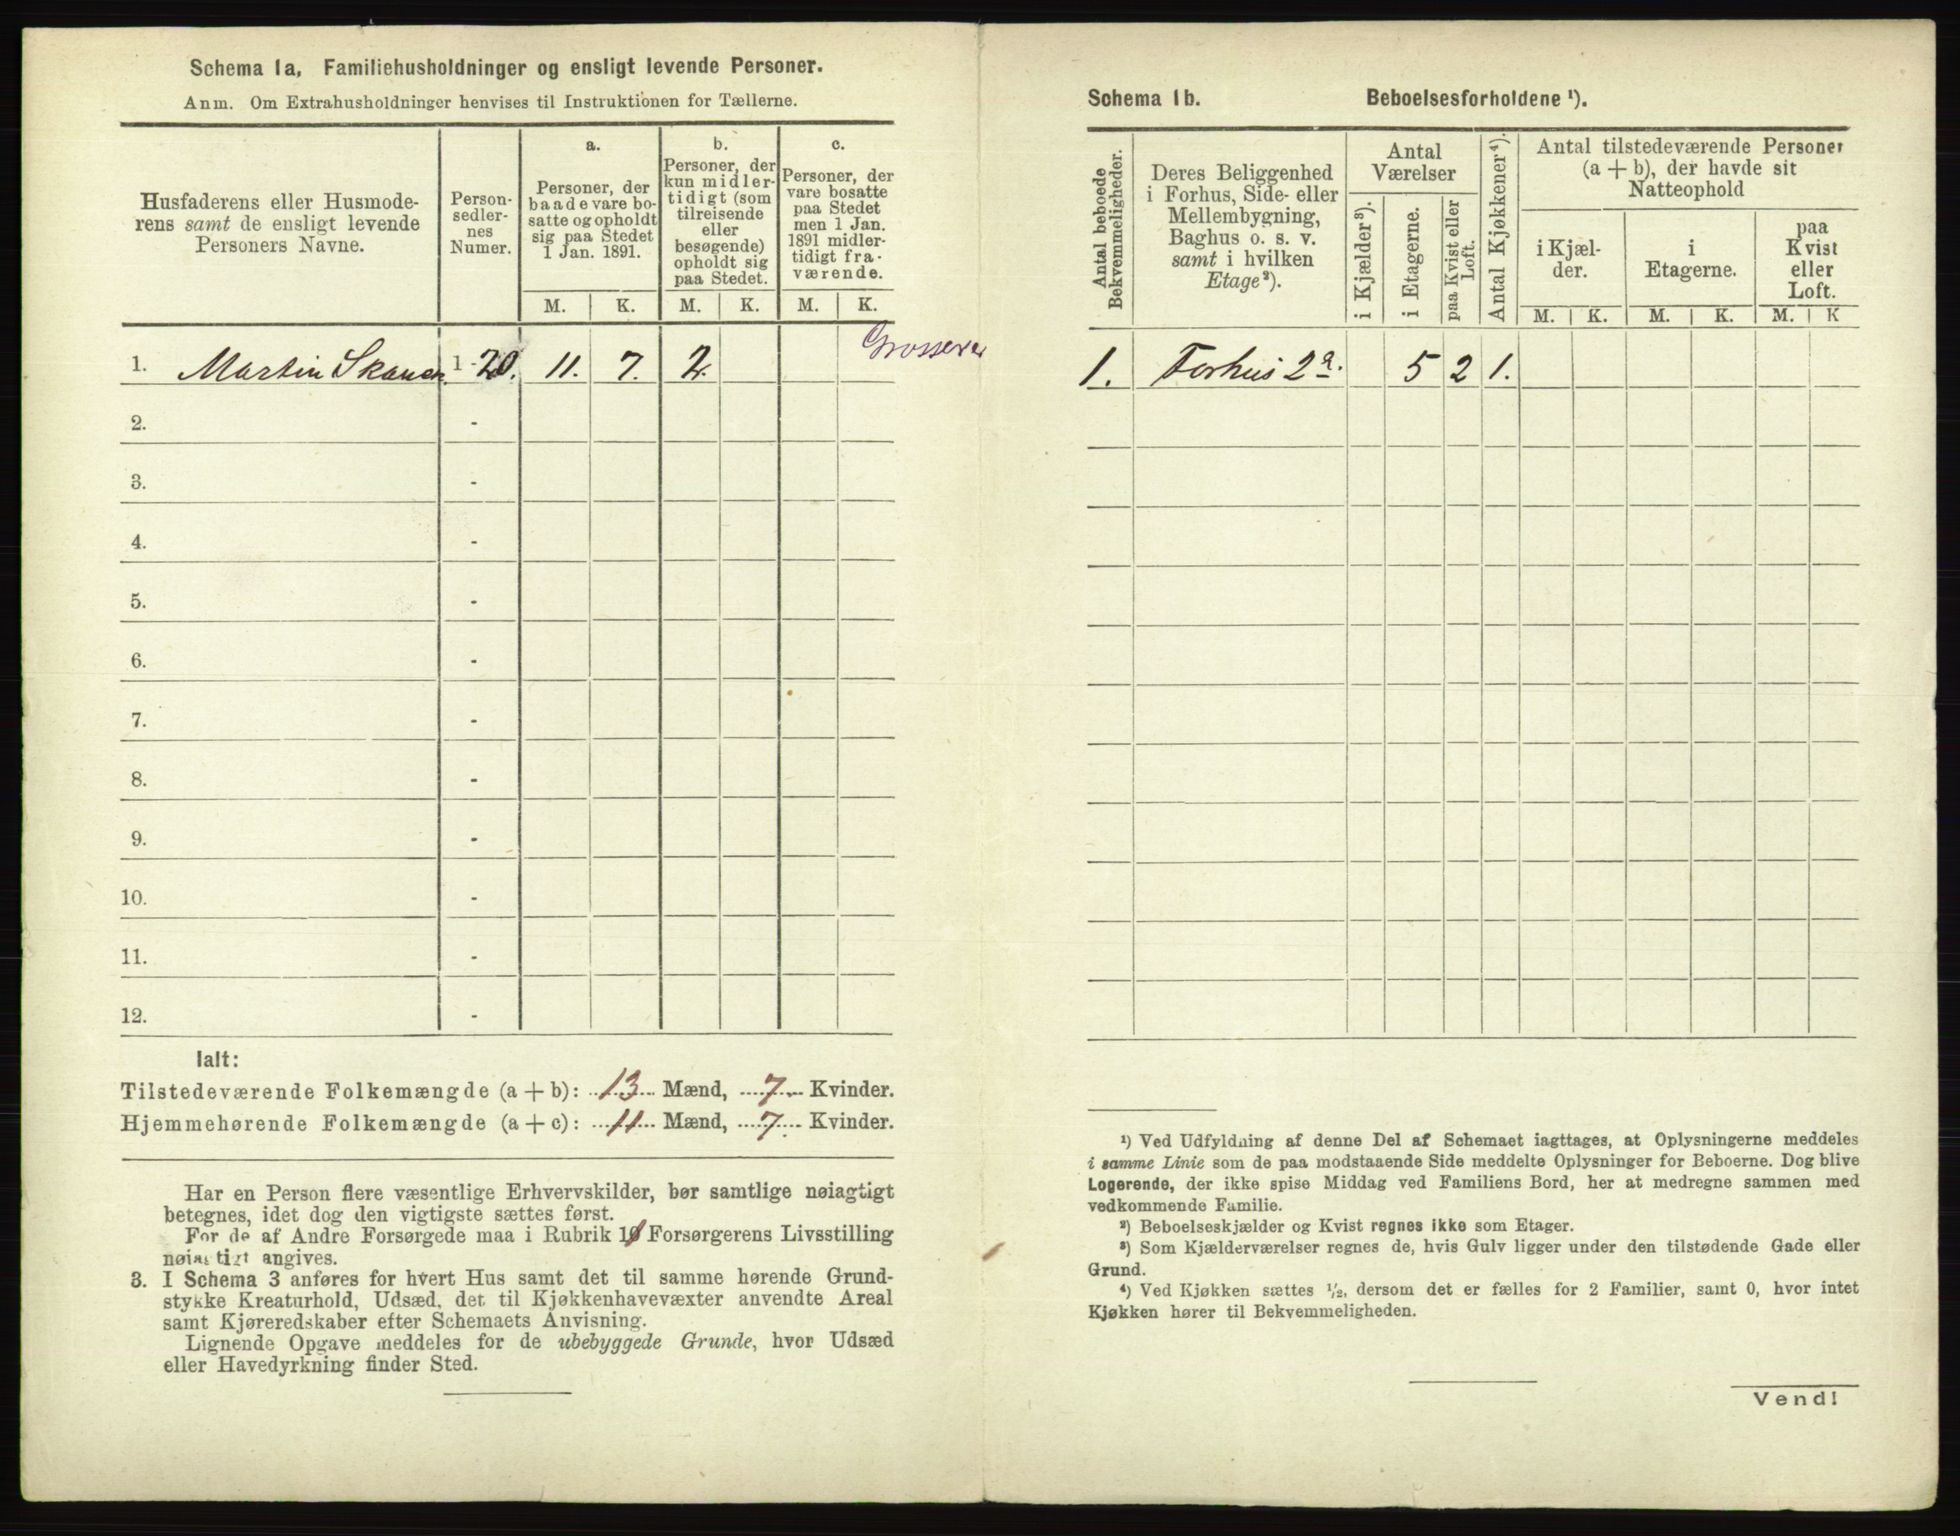 Schema 1a, Familiehusholdninger og ensligt levende Personer.
Anm. Om Extrahusholdninger henvises til Instruktionen for Tællerne.
Husfaderens eller Husmode-
rens samt de ensligt levende
Personers Navne.
Person-
sedler-
nes
Numer.
a.
Personer, der
baade vare bo-
satte og opholdt
sig paa Stedet
1 Jan. 1891.
b.
Personer, der
kun midler-
tidigt (som
tilreisende
eller
besøgende)
opholdt sig
paa Stedet.
c.
Personer, der
vare bosatte
paa Stedet
men 1 Jan.
1891 midler-
tidigt fra-
værende.
M. K. M. K. M. K.
Grosserer
1. Martin 1 - 20. 11. 7. 2.
2. -
3. -
4. -
5. -
6. -
7. -
8. -
9. -
10. -
11. -
12. -
Ialt:
Tilstedeværende Folkemængde (a + b): 13 Mænd, 7 Kvinder.
Hjemmehørende Folkemængde (a + c): 11 Mænd, 7 Kvinder.
Har en Person flere væsentlige Erhvervskilder, bør samtlige nøiagtigt
betegnes, idet dog den vigtigste sættes først.
For de af Andre Forsørgede maa i Rubrik 10 Forsørgerens Livsstilling
nøiagtigt angives.
3. I Schema 3 anføres for hvert Hus samt det til samme hørende Grund-
stykke Kreaturhold, Udsæd, det til Kjøkkenhavevæxter anvendte Areal
samt Kjøreredskaber efter Schemaets Anvisning.
Lignende Opgave meddeles for de ubebyggede Grunde, hvor Udsæd
eller Havedyrkning finder Sted.
Schema 1b. Beboelsesforholdene ¹).
Antal beboede
Bekvemmeligheder.
Deres Beliggenhed
i Forhus, Side- eller
Mellembygning,
Baghus o. s. v.
samt i hvilken
Etage²).
Antal
Værelser
i Kjælder³).
i Etagerne.
paa Kvist eller
Loft.
Antal Kjøkkener⁴).
Antal tilstedeværende Personer
(a + b), der havde sit
Natteophold
i Kjæl-
der.
i
Etagerne.
paa
Kvist
eller
Loft.
M. K. M. K. M. K
1. Forhus 2a. 5 2 1.
¹) Ved Udfyldning af denne Del af Schemaet iagttages, at Oplysningerne meddeles
i samme Linie som de paa modstaaende Side meddelte Oplysninger for Beboerne. Dog blive
Logerende, der ikke spise Middag ved Familiens Bord, her at medregne sammen med
vedkommende Familie.
²) Beboelseskjælder og Kvist regnes ikke som Etager.
³) Som Kjælderværelser regnes de, hvis Gulv ligger under den tilstødende Gade eller
Grund.
⁴) Ved Kjøkken sættes ½, dersom det er fælles for 2 Familier, samt 0, hvor intet
Kjøkken hører til Bekvemmeligheden.
Vend!